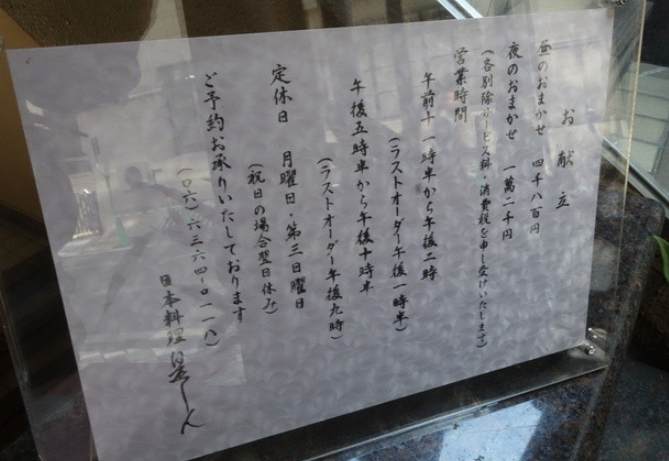 お献立
昼のおまかせ 四千八百円
夜のおまかせ 一萬二千円
(各別除サービス料・消費税を申し受けいたします)
営業時間
午前十一時半から午後二時
(ラストオーダー午後一時半)
午後五時半から午後十時半
(ラストオーダー午後九時)
定休日 月曜日・第三日曜日
(祝日の場合翌日休み)
ご予約お承りいたしております
(〇六)六三六四-〇一一八)
日本料理